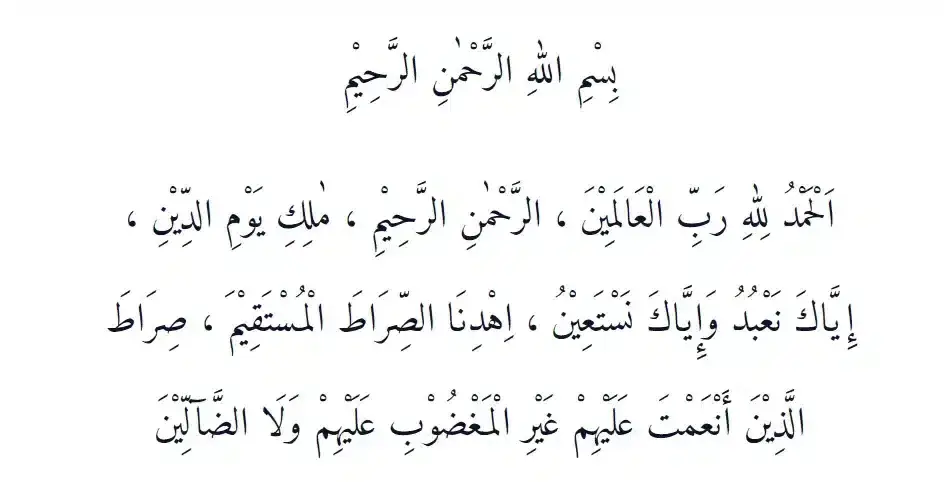 بِسْمِ اللهِ الرَّحْمٰنِ الرَّحِيْمِ
اَلْحَمْدُ لِلهِ رَبِّ الْعَالَمِيْنَ ، الرَّحْمٰنِ الرَّحِيْمِ ، مٰلِكِ يَوْمِ الدِّيْنِ ،
إِيَّاكَ نَعْبُدُ وَإِيَّاكَ نَسْتَعِيْنُ ، اِهْدِنَا الصِّرَاطَ الْمُسْتَقِيْمَ ، صِرَاطَ
الَّذِيْنَ أَنْعَمْتَ عَلَيْهِمْ غَيْرِ الْمَغْضُوْبِ عَلَيْهِمْ وَلَا الضَّآلِّيْنَ